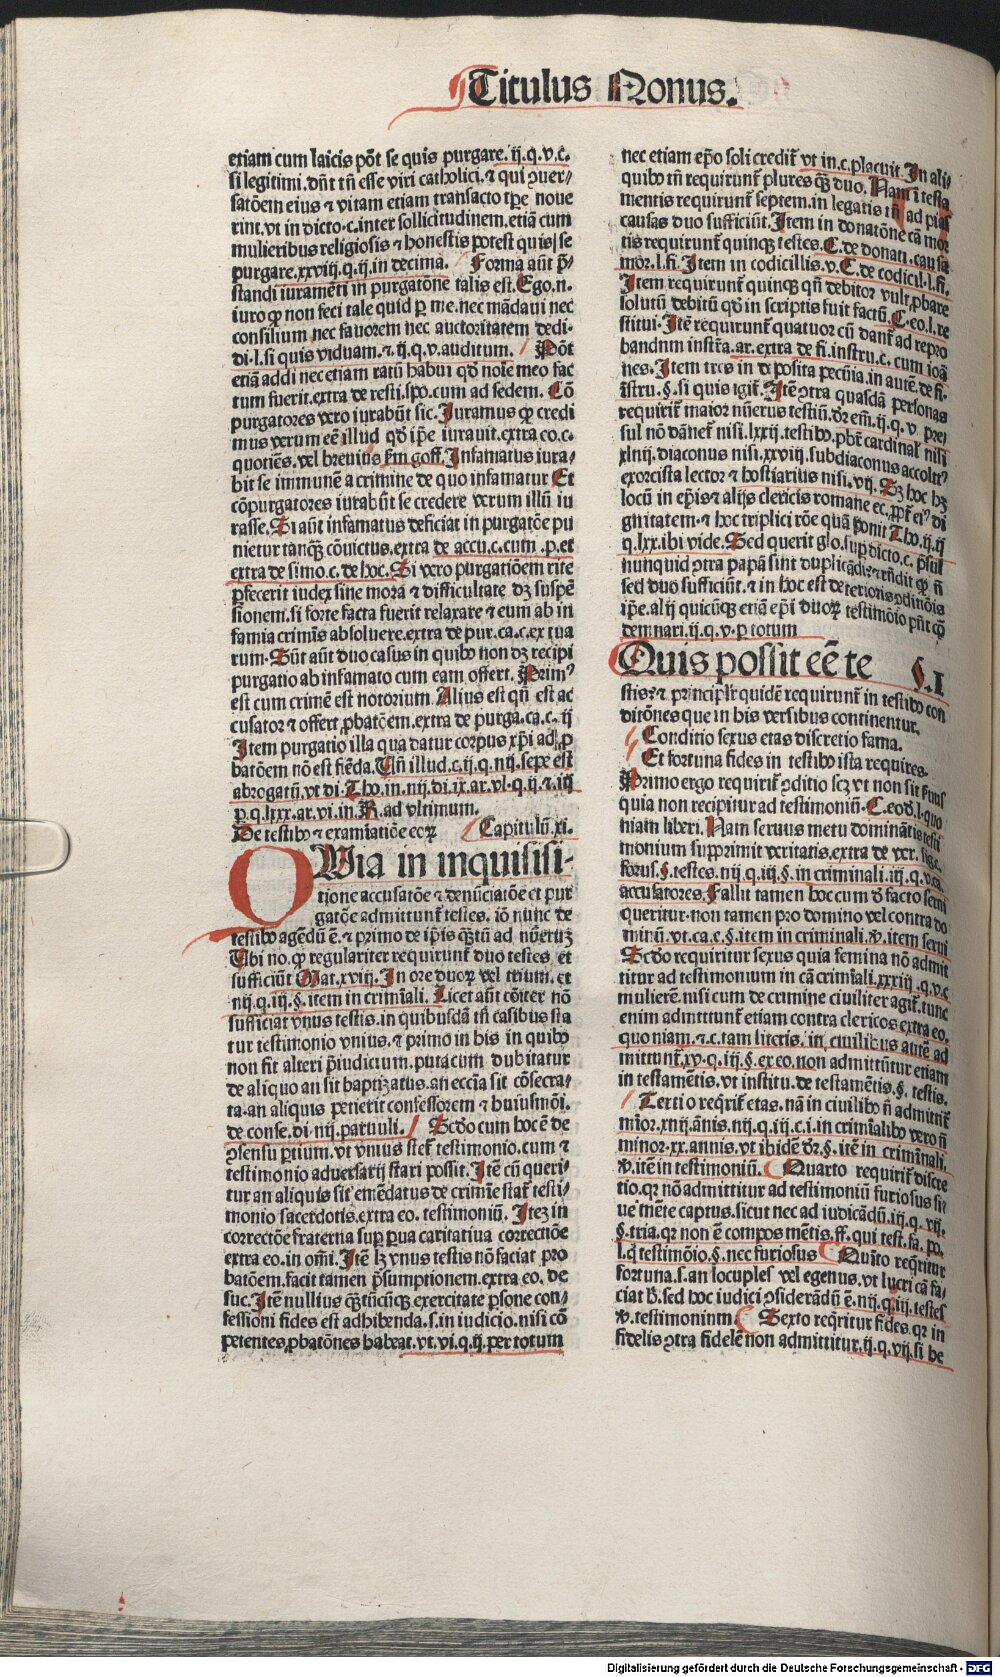 Titulus Nonus.
etiam cum laicis põt se quis purgare. ij.q.v.c̃.
si legitimi. dñt tñ esse viri catholici. ⁊ qui ꝯuer⸗
satõem eius ⁊ vitam etiam transacto tp̃e noue
rint. vt in dicto.c.inter sollicitudinem. etiã cum
mulieribus religiosis ⁊ honestis potest quis se
purgare. xxviij.q.ij.in decima. Forma aũt p̃⸗
standi iuramẽti in purgatõne talis est. Ego.n.
iuro ꝙ non feci tale quid ꝑ me. nec mãdaui nec
consilium nec fauorem nec auctoritatem dedi.
di.l.si quis viduam. ⁊. ij.q.v.auditum. Põt
etiã addi nec etiam ratũ habui qđ noĩe meo fac
tum fuerit. extra de resti.spo.cum ad sedem. Cõ
purgatores vero iurabũt sic. Iuramus ꝙ credi
mus verum eẽ illud qđ ip̃e iurauit. extra eo.c.
quotiẽs. vel breuius fm̃ goff. Infamatus iura⸗
bit se immunẽ a crimine de quo infamatur Et
cõpurgatores iurabũt se credere verum illũ iu
rasse. Si aũt infamatus deficiat in purgatõe pu
nietur tanq̃ cõuictus. extra de accu.c.cum.p.et
extra de simo.c.de hoc. Si vero purgatiõem rite
ꝑfecerit iudex sine mora ⁊ difficultate dꝫ suspẽ
sionem. si forte facta fuerit relaxare ⁊ eum ab in
famia crimĩs absoluere. extra de pur.ca.c.ex tua
rum. Sũt aũt duo casus in quibꝰ non dꝫ recipi
purgatio ab infamato cum eam offert. Primꝰ
est cum crimẽ est notorium. Alius est qñ est ac
cusator ⁊ offert ꝓbatõem. extra de purga.ca.c.ij
Item purgatio illa qua datur corpus xp̃i ad ꝓ
batõem nõ est fiẽda. Tñ illud.c.ij.q.iiij.sepe est
abrogatũ. vt di. Tho.in.iiij.di.ix.ar.vl.q.ij.⁊.iij
p.q.lxxx.ar.vi.in. R. ad vltimum.
De testibꝰ ⁊ examĩatiõe eoꝝ Capitulũ.xi.
QVia in inquisiti⸗
tione accusatõe ⁊ denũciatõe et pur
gatõe admittunt̃ testes. iõ nunc de
testibꝰ agẽdũ ẽ. ⁊ primo de ip̃is q̃tũ ad nũerũꝫ
Vbi no. ꝙ regulariter requirunt̃ duo testes. et
sufficiũt Mat.xviij. In ore duoꝝ vel trium. et
iiij.q.iij.§.item in crimĩali. Licet aũt cõiter nõ
sufficiat vnus testis. in quibusdã tñ casibus sta
tur testimonio vnius. ⁊ primo in his in quibꝰ
non fit alteri p̃iudicium. puta cum dubitatur
de aliquo an sit baptizatus. an eccĩa sit cõsecra⸗
ta. an aliquis petierit confessorem ⁊ huiusmõi.
de conse.di.iiij.paruuli. Scđo cum hoc ẽ de
ꝯsensu ꝑtium. vt vnius stet̃ testimonio. cum ⁊
testimonio aduersarij stari possit. Itẽ cũ queri⸗
tur an aliquis sit emẽdatus de crimĩe stat̃ testi⸗
monio sacerdotis. extra eo. testimoniũ. Iteꝫ in
correctiõe fraterna sup̃ pua caritatiua correctiõe
extra eo.in om̃i. Itẽ lꝫ vnus testis nõ faciat pro
batõem. facit tamen p̃sumptionem. extra eo. de
suc. Itẽ nullius q̃ntũcũq̃ exercitate ꝑsone con⸗
fessioni fides est adhibenda.s.in iudicio. nisi cõ
petentes ꝓbatõnes habeat. vt.vi.q.ij.per totum
nec etiam ep̃o soli credit̃ vt in.c.placuit. In ali⸗
quibꝰ tñ requirunt̃ plures q̃ duo. Nam ĩ testa
mentis requirunt̃ septem. in legatis tñ ad pias
causas duo sufficiũt. Item in donatõne cã mor
tis requirunt̃ quinqꝫ testes. C. de donati.causa
mor.l.fi. Item in codicillis.v. C.de codicil.l.fi.
Item requirunt̃ quinqꝫ qñ debitor vult ꝓbare
solutũ debitũ qđ in scriptis fuit factũ. C. eo.l.te
stitui. Itẽ requirunt̃ quatuor cũ dant̃ ad repro
bandum instr̃a. ar. extra de fi.instru.c. cum ioã
nes. Item tres in deposita pecũia. in autẽ. de fi.
ĩstru.§.si quis igit̃. Itẽ ꝯtra quasdã personas
requirit̃ maior nũerus testiũ. đr em̃. ij.q.v. prei
sul nõ dãnet̃ nisi.lxxij.testibꝰ. p̃bt̃ cardinal̃ nisi
xliiij. diaconus nisi.xxviij. subdiaconus accolitꝰ
exorcista lector ⁊ hostiarius nisi.vij. Sꝫ hoc hꝫ
locũ in ep̃is ⁊ alijs clericis romane ec. ꝓpt̃ eiꝰ di
gnitatem. ⁊ hoc triplici rõe quã ponit Tho.ij.ij
q.lxx. ibi vide. Sed querit glo. sup̃ dicto.c. p̃sul
nunquid ꝯtra papã sint duplicãdi. ⁊ rñdit ꝙ ñ
sed duo sufficiũt. ⁊ in hoc est deterioris ꝯditiõis
ip̃e. alij quicũqꝫ etiã ep̃i duoꝝ testimõio pñt ꝙ
demnari. ij.q.v. p totum
Quis possit eẽ te §.I
stis? ⁊ principlr̃ quidẽ requirunt̃ in testibꝰ con
ditõnes que in his versibus continentur.
Conditio sexus etas discretio fama.
Et fortuna fides in testibꝰ ista requires.
Primo ergo requirit̃ ꝯditio scꝫ vt non sit ẜuus
quia non recipitur ad testimoniũ. C. eod.l.quo
niam liberi. Nam seruus metu dominãtis testi
monium supprimit veritatis. extra de ver. sige.
forus.§.testes.iiij.q.iij.§.in criminali.iij.q.v.ca.
accusatores. Fallit tamen hoc cum đ facto serui
queritur. non tamen pro domino vel contra do
minũ. vt.ca.e.§.item in criminali. ℣. item serui
Scđo requiritur sexus quia femina nõ admit
titur ad testimonium in cã crimĩali. xxxiij.q.v.c
mulierẽ. nisi cum de crimine ciuiliter agit̃. tunc
enim admittunt̃ etiam contra clericos extra eo.
quoniam. ⁊.c. tam literis. in ciuilibus autẽ ad
mittunt̃. xv.q.iij.§.ex eo. non admittũtur etiam
in testamẽtis. vt institu. de testamẽtis.§. testis.
Tertio reqrit̃ etas. nã in ciuilibꝰ ñ admittit̃
mĩor.xiiij.ãnis.iiij.q.iij.c.i. in crimĩalibꝰ vero ñ
minor.xx.annis. vt ibidẽ đr.§.itẽ in crimĩnali.
℣. itẽ in testimoniũ. Quarto requirit̃ discre
tio. qꝛ nõ admittitur ad testimoniũ furiosus si⸗
ue mẽte captus. sicut nec ad iudicãdũ. iij.q.vij.
§.tria. qꝛ non ẽ compos mẽtis. ff. qui test. fa. po.
l.q̃ testimõio.§.nec furiosus Quĩto req̃ritur
fortuna.s. an locuples vel egenus. vt lucri cã fa⸗
ciat ℣. sed hoc iudici ꝯsiderãdũ ẽ. iiij.q.iij.testes
℣. testimonium. Sexto req̃ritur fides. qꝛ in
fidelis ꝯtra fidelẽ non admittitur. ij.q.vij.si he
Digitalisierung gefördert durch die Deutsche Forschungsgemeinschaft - DFG